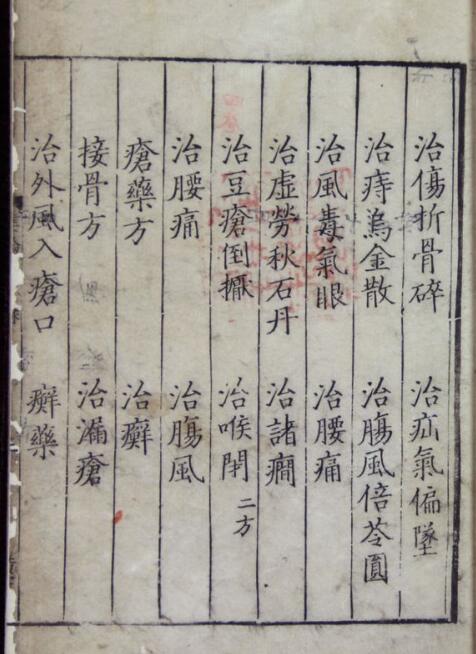 治傷折骨碎 治疝氣偏墜
治痔烏金散 治腸風倍苓圓
治風毒氣眼 治腰痛
治虛勞秋石丹 治諸癇
治豆瘡倒靨 治喉閉二方
治腰痛 治腸風
瘡藥方 治癬
接骨方 治漏瘡
治外風入瘡口 癬藥